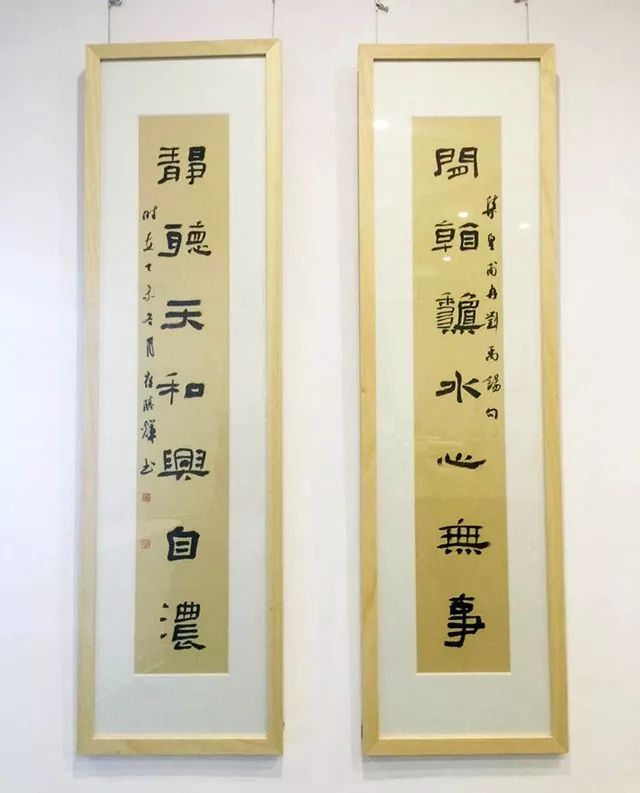 閒看龝水心無事
集皇甫冉劉禹錫句
靜聽天和興自濃
時在乙未冬月崔勝輝書